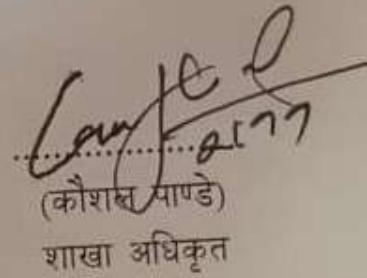 ....................
(कौशल पाण्डे)
शाखा अधिकृत